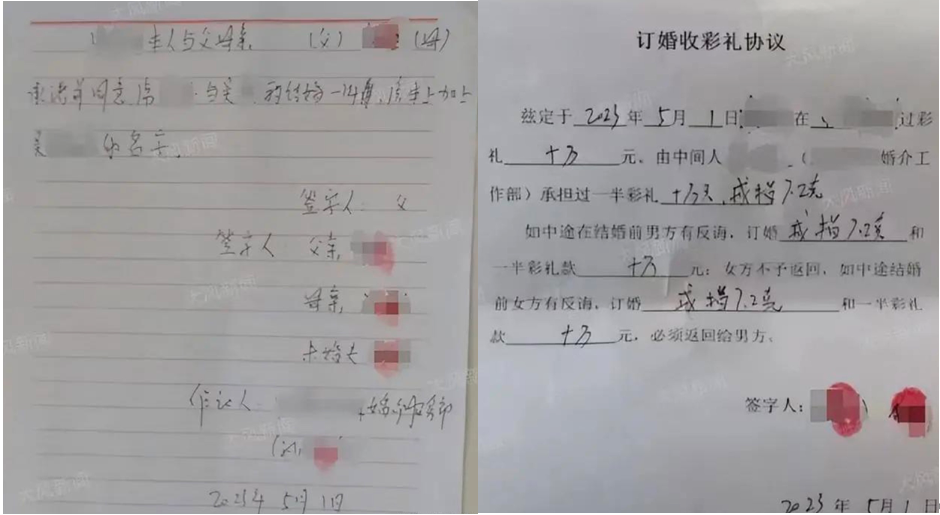 本人与父母亲 (父) (母)
承诺并同意席 与吴 的结婚一年内,房产上加上
吴 的名字
签字人: 父
签字人 父亲
母亲
未婚夫
作证人 婚介服务部
2023年 5月 1日
订婚收彩礼协议
兹定于 2023 年 5 月 1 日 在 过彩
礼 十万 元,由中间人 ( 婚介工
作部)承担过一半彩礼 十万元,戒指7.2克
如中途在结婚前男方有反诲,订婚 戒指7.2克 和
一半彩礼款 十万 元;女方不予返回,如中途结婚
前女方有反诲,订婚 戒指7.2克 和一半彩礼
款 十万 元,必须返回给男方、
签字人:
2023 年 5月 1 日
大风新闻